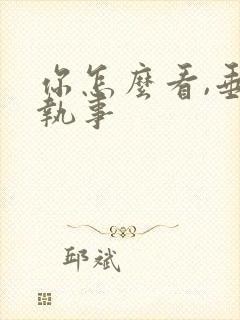 你怎麼看,
執事
邱斌